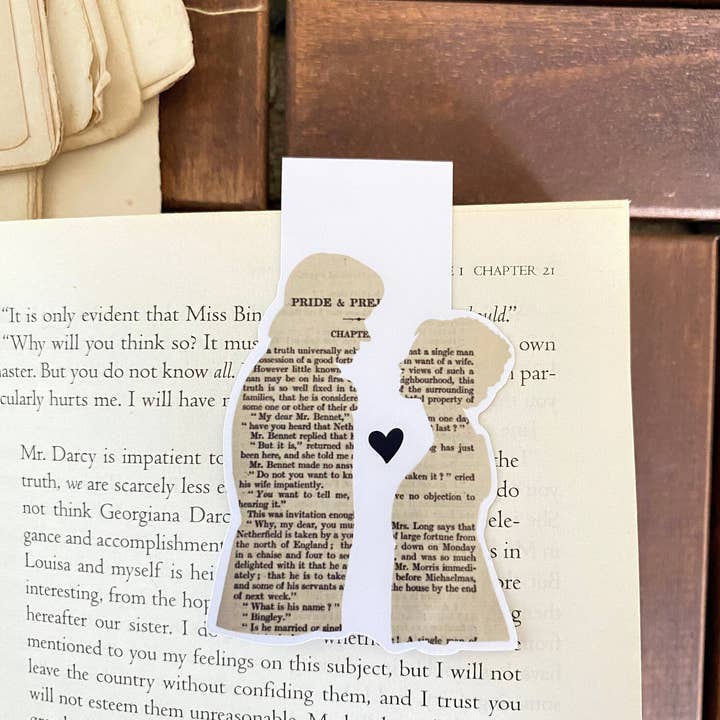 E I CHAPTER 21
"It is only evident that Miss Bin ould."
"Why will you think so? It mus own
aster. But you do not know all. par-
cularly hurts me. I will have r
Mr. Darcy is impatient to the
truth, we are scarcely less e do
not think Georgiana Darc ele-
gance and accomplishment s in
Louisa and myself is hei ore
interesting, from the hop
hereafter our sister. I do whethe
mentioned to you my feelings on this subject, but I will not
leave the country without confiding them, and I trust you
will not esteem them unreasonable.
PRIDE & PREJ
CHAPTE
a truth universally ack at a single man
ossession of a good fortu n want of a wife.
However little known views of such a
man may be on his first ighbourhood, this
truth is so well fixed in t the surrounding
families, that he is considere property of
some one or other of their da
"My dear Mr. Bennet," m one day
"have you heard that Neth last?"
Mr. Bennet replied that h
"But it is," returned sh g has just
been here, and she told me a
Mr. Bennet made no answ
"Do not you want to kn aken it?" cried
his wife impatiently.
"You want to tell me, ve no objection to
hearing it."
This was invitation enoug
"Why, my dear, you mu Mrs. Long says that
Netherfield is taken by a yo f large fortune from
the north of England; th down on Monday
in a chaise and four to see and was so much
delighted with it that he a Mr. Morris immedi-
ately; that he is to take before Michaelmas,
and some of his servants a the house by the end
of next week."
"What is his name?"
"Bingley."
"Is he married or singl ! A single man of